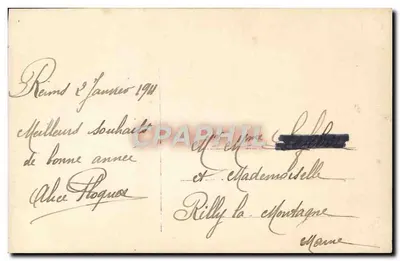 Reims 2 Janvier 1911
Meilleurs souhaits
de bonne année
Alice
CPAPHIL
Mr Mme
et Mademoiselle
Rilly la Montagne
Marne